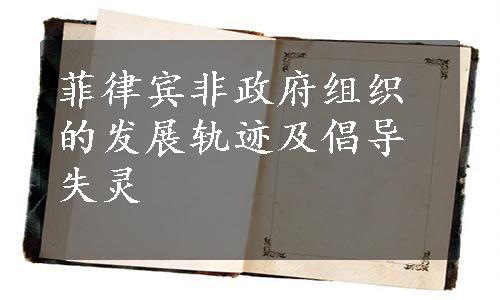 菲律宾非政府组织
的发展轨迹及倡导
失灵